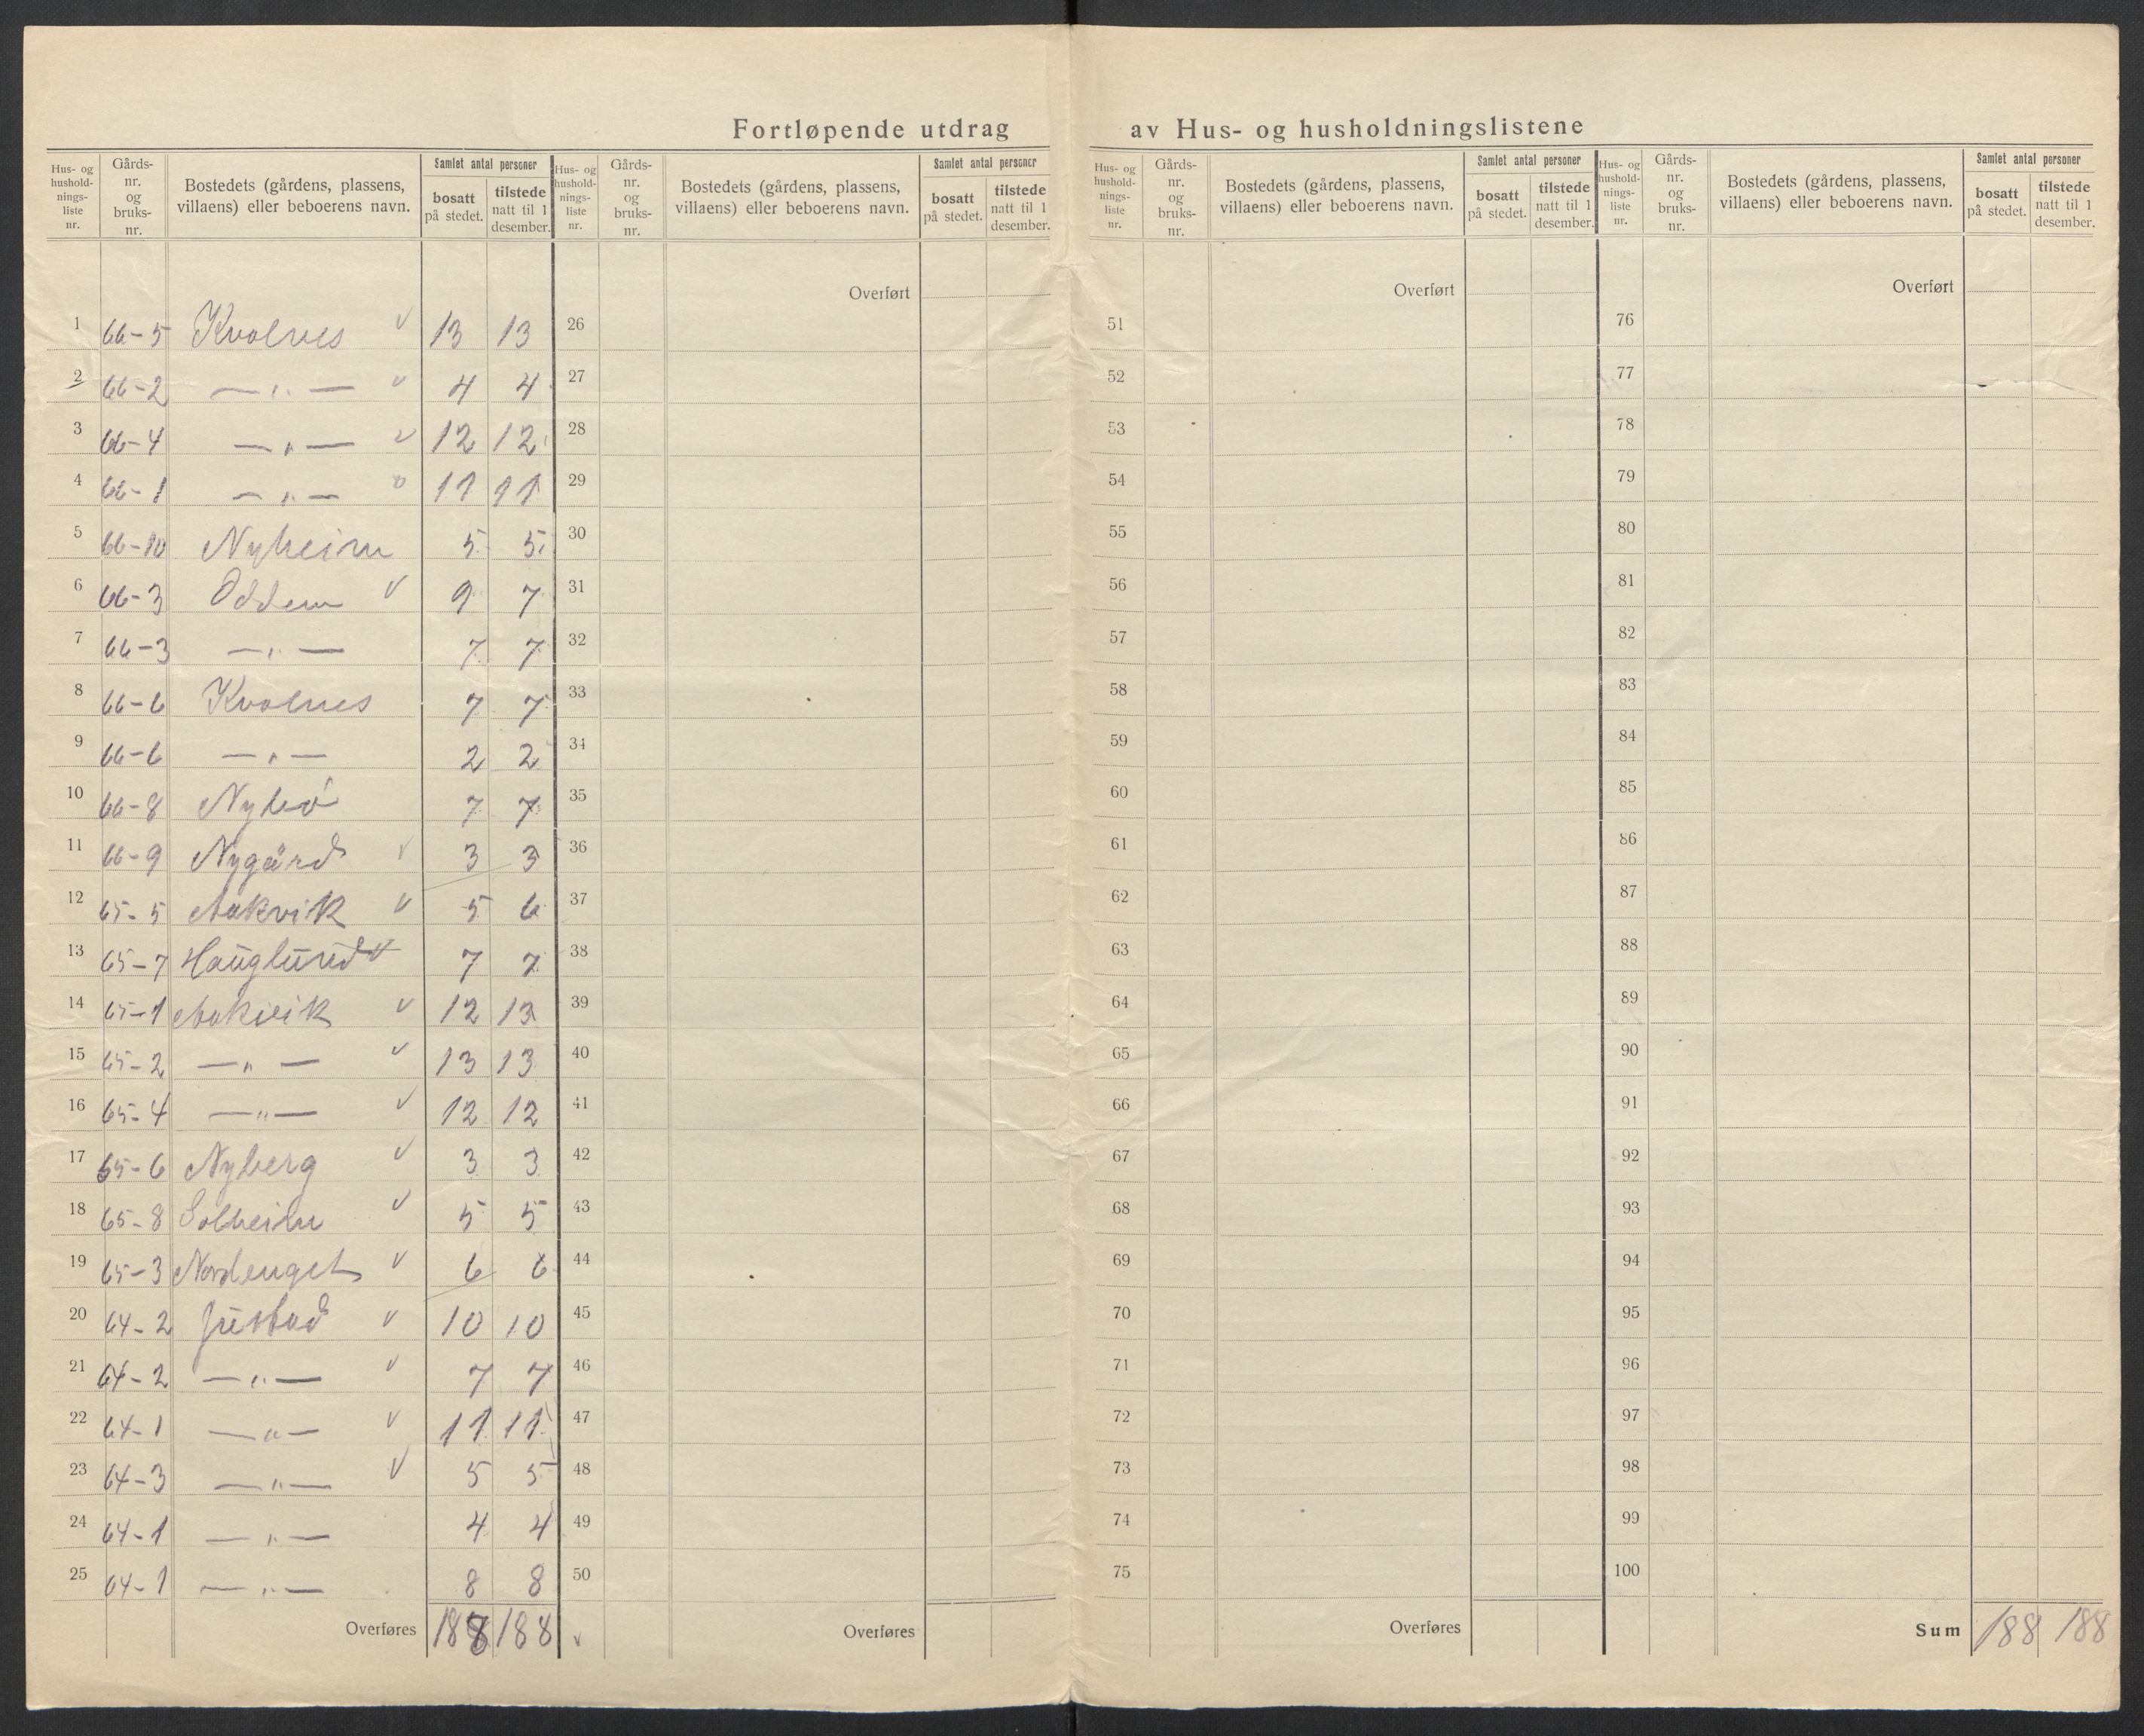 Fortløpende utdrag av Hus- og husholdningslistene
Hus- og hushold-nings-liste nr. Gårds-nr. og bruks-nr. Bostedets (gårdens, plassens, villaens) eller beboerens navn. Samlet antal personer bosatt på stedet. tilstede natt til 1 desember.
Hus- og hushold-nings-liste nr. Gårds-nr. og bruks-nr. Bostedets (gårdens, plassens, villaens) eller beboerens navn. Samlet antal personer bosatt på stedet. tilstede natt til 1 desember.
Hus- og hushold-nings-liste nr. Gårds-nr. og bruks-nr. Bostedets (gårdens, plassens, villaens) eller beboerens navn. Samlet antal personer bosatt på stedet. tilstede natt til 1 desember.
Hus- og hushold-nings-liste nr. Gårds-nr. og bruks-nr. Bostedets (gårdens, plassens, villaens) eller beboerens navn. Samlet antal personer bosatt på stedet. tilstede natt til 1 desember.
Overført Overført Overført
1 66-5 Kvalnes v 13 13 26 51 76
2 66-2 — " — v 4 4 27 52 77
3 66-4 — " — v 12 12 28 53 78
4 66-1 — " — v 11 11 29 54 79
5 66-10 Nyheim 5 5 30 55 80
6 66-3 Oddem v 9 7 31 56 81
7 66-3 — " — 7 7 32 57 82
8 66-6 Kvalnes 7 7 33 58 83
9 66-6 — " — 2 2 34 59 84
10 66-8 Nybø 7 7 35 60 85
11 66-9 Nygård v 3 3 36 61 86
12 65-5 Aakvik v 5 6 37 62 87
13 65-7 Hauglund v 7 7 38 63 88
14 65-1 Aakvik v 12 13 39 64 89
15 65-2 — " — v 13 13 40 65 90
16 65-4 — " — v 12 12 41 66 91
17 65-6 Nyberg v 3 3 42 67 92
18 65-8 Solheim v 5 5 43 68 93
19 65-3 Nordenget v 6 6 44 69 94
20 64-2 Justad v 10 10 45 70 95
21 64-2 — " — v 7 7 46 71 96
22 64-1 — " — v 11 11 47 72 97
23 64-3 — " — v 5 5 48 73 98
24 64-1 — " — 4 4 49 74 99
25 64-1 — " — 8 8 50 75 100
Overføres 188 188 v Overføres Overføres Sum 188 188